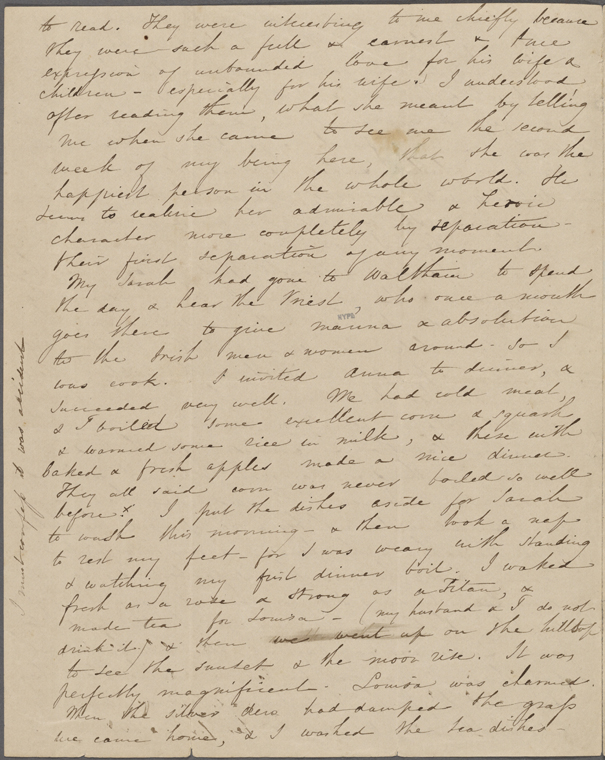 to read. They were interesting to me chiefly because
they were such a full & earnest & true
expression of unbounded love for his wife &
children – especially for his wife. I understood
after reading them, what she meant by telling
me when she came to see me the second
week of my being here, that she was the
happiest person in the whole world. He
seems to realize her admirable & heroic
character more completely by separation –
their first separation of any moment.
My Sarah had gone to Waltham to spend
the day & hear the Priest, who once a month
goes there to give manna & absolution
NYPL
to the Irish men & women around. So I
was cook. I invited Anna to dinner, &
succeeded very well. We had cold meat,
& I boiled some excellent corn & squash
& warmed some rice in milk, & these with
baked & fresh apples made a nice dinner.
They all said corn was never boiled so well
before.x I put the dishes aside for Sarah
to wash this morning – & then took a nap
to rest my feet – for I was weary with standing
& watching my first dinner boil. I waked
fresh as a rose & strong as a Titan, &
made tea for Louisa – (my husband & I do not
drink it) & then we went up on the hilltop
to see the sunset & the moon rise. It was
perfectly magnificent. Louisa was charmed.
When the silver dew had damped the grass
we came home, & I washed the tea dishes –
x I must confess it was accident